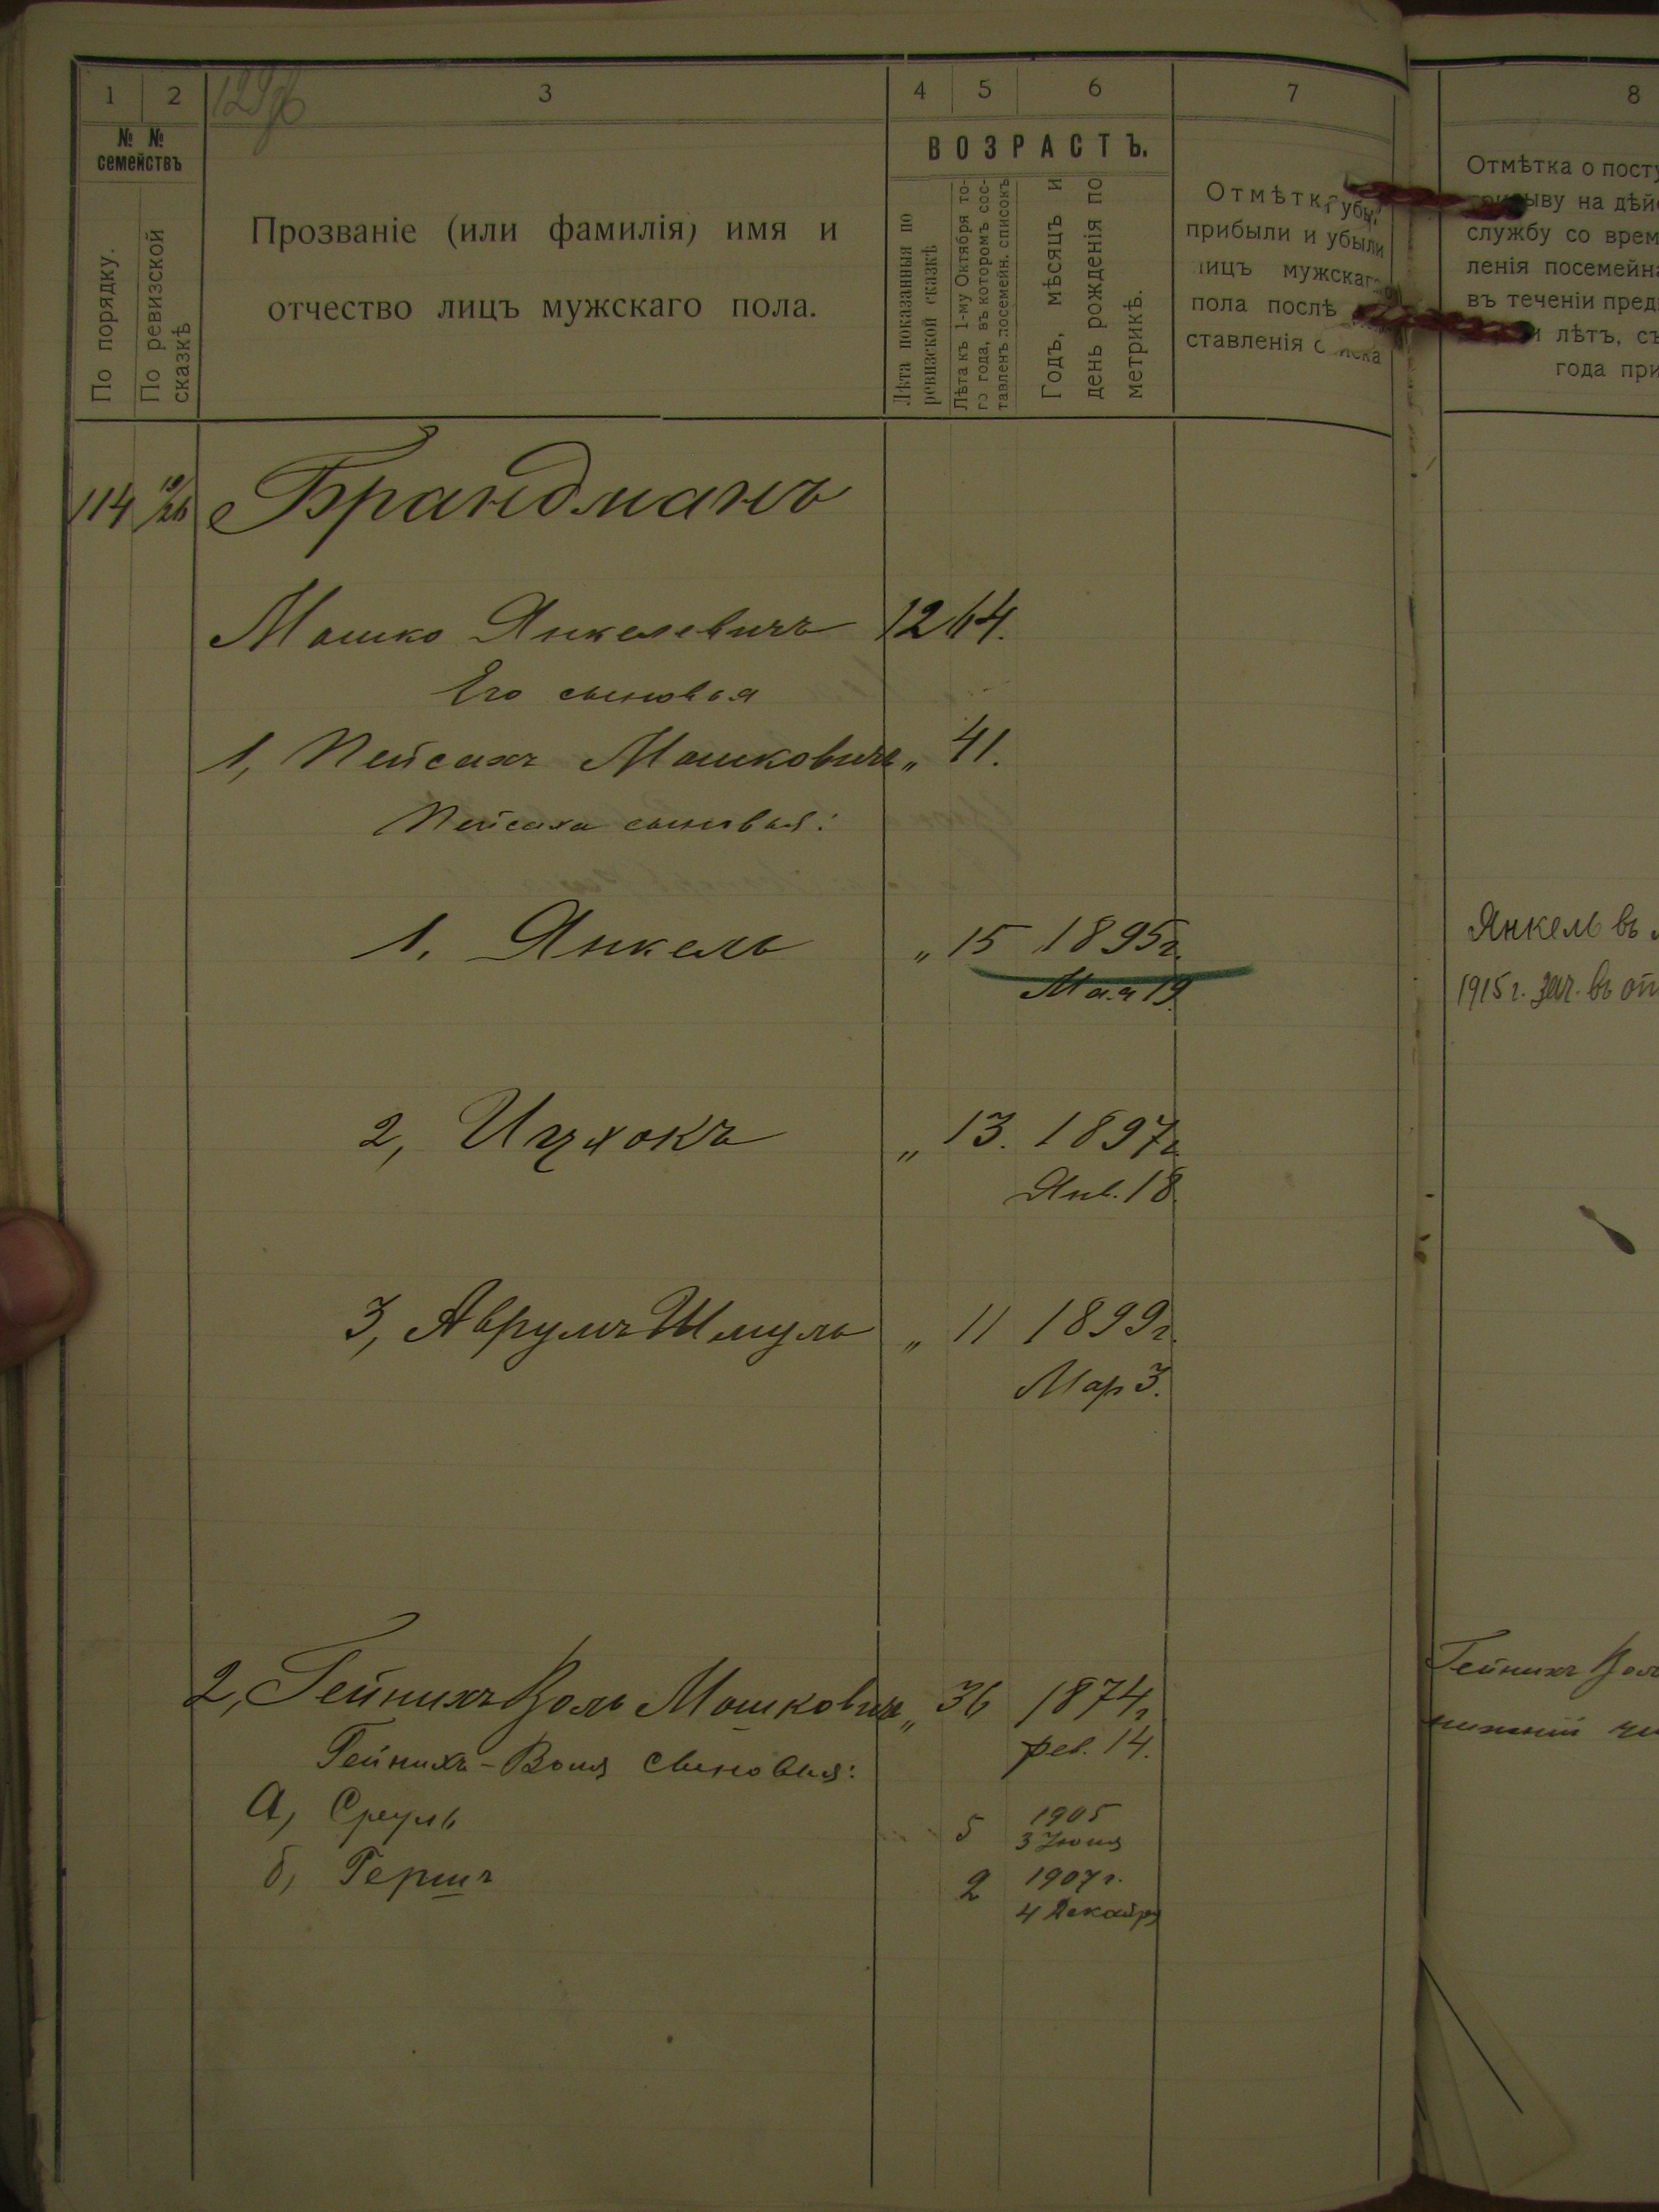 1 2 3 4 5 6 7 8
№ №
семействъ
По порядку.
По ревизской
сказкѣ
Прозваніе (или фамилія) имя и
отчество лицъ мужскаго пола.
ВОЗРАСТЪ.
Лѣта показанныя по
ревизской сказкѣ
Лѣта къ 1-му Октября то-
го года, въ которомъ сос-
тавленъ посемейн. списокъ
Годъ, мѣсяцъ и
день рожденія по
метрикѣ.
Отмѣтка
прибыли и убыли
лицъ мужскаго
пола послѣ
ставленія списка
Отмѣтка о посту
на дѣй
службу со врем
ленія посемейн
въ теченіи пред
лѣтъ, съ
года при
114 Брандманъ
Мошко Янкелевичъ 12 64.
Его сыновья
1, Пейсахъ Мошковичъ „ 41.
Пейсаха сыновья:
1. Янкель „ 15 1895г.
Мая 19.
Янкель въ
1915 г. зач. въ оп
2, Ицхокъ „ 13. 1897г.
Янв. 18.
3, Аврумъ Шмуль „ 11 1899г.
Мар 3.
2, Гейнихъ Воль Мошковичъ „ 36 1874г.
фев. 14.
Гейнихъ-Воля сыновья:
Гейнихъ Вол
нижній чи
а, Сруль 5 1905
3 Іюня
б, Гершъ 2 1907 г.
4 Декабря